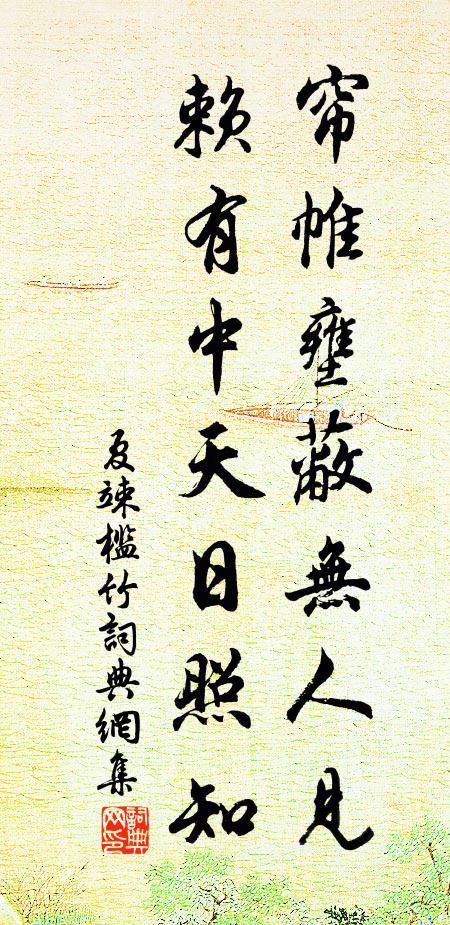 帘帷壅蔽無人見
賴有中天日照知
夏竦槛竹詞典網集
詞典
网印